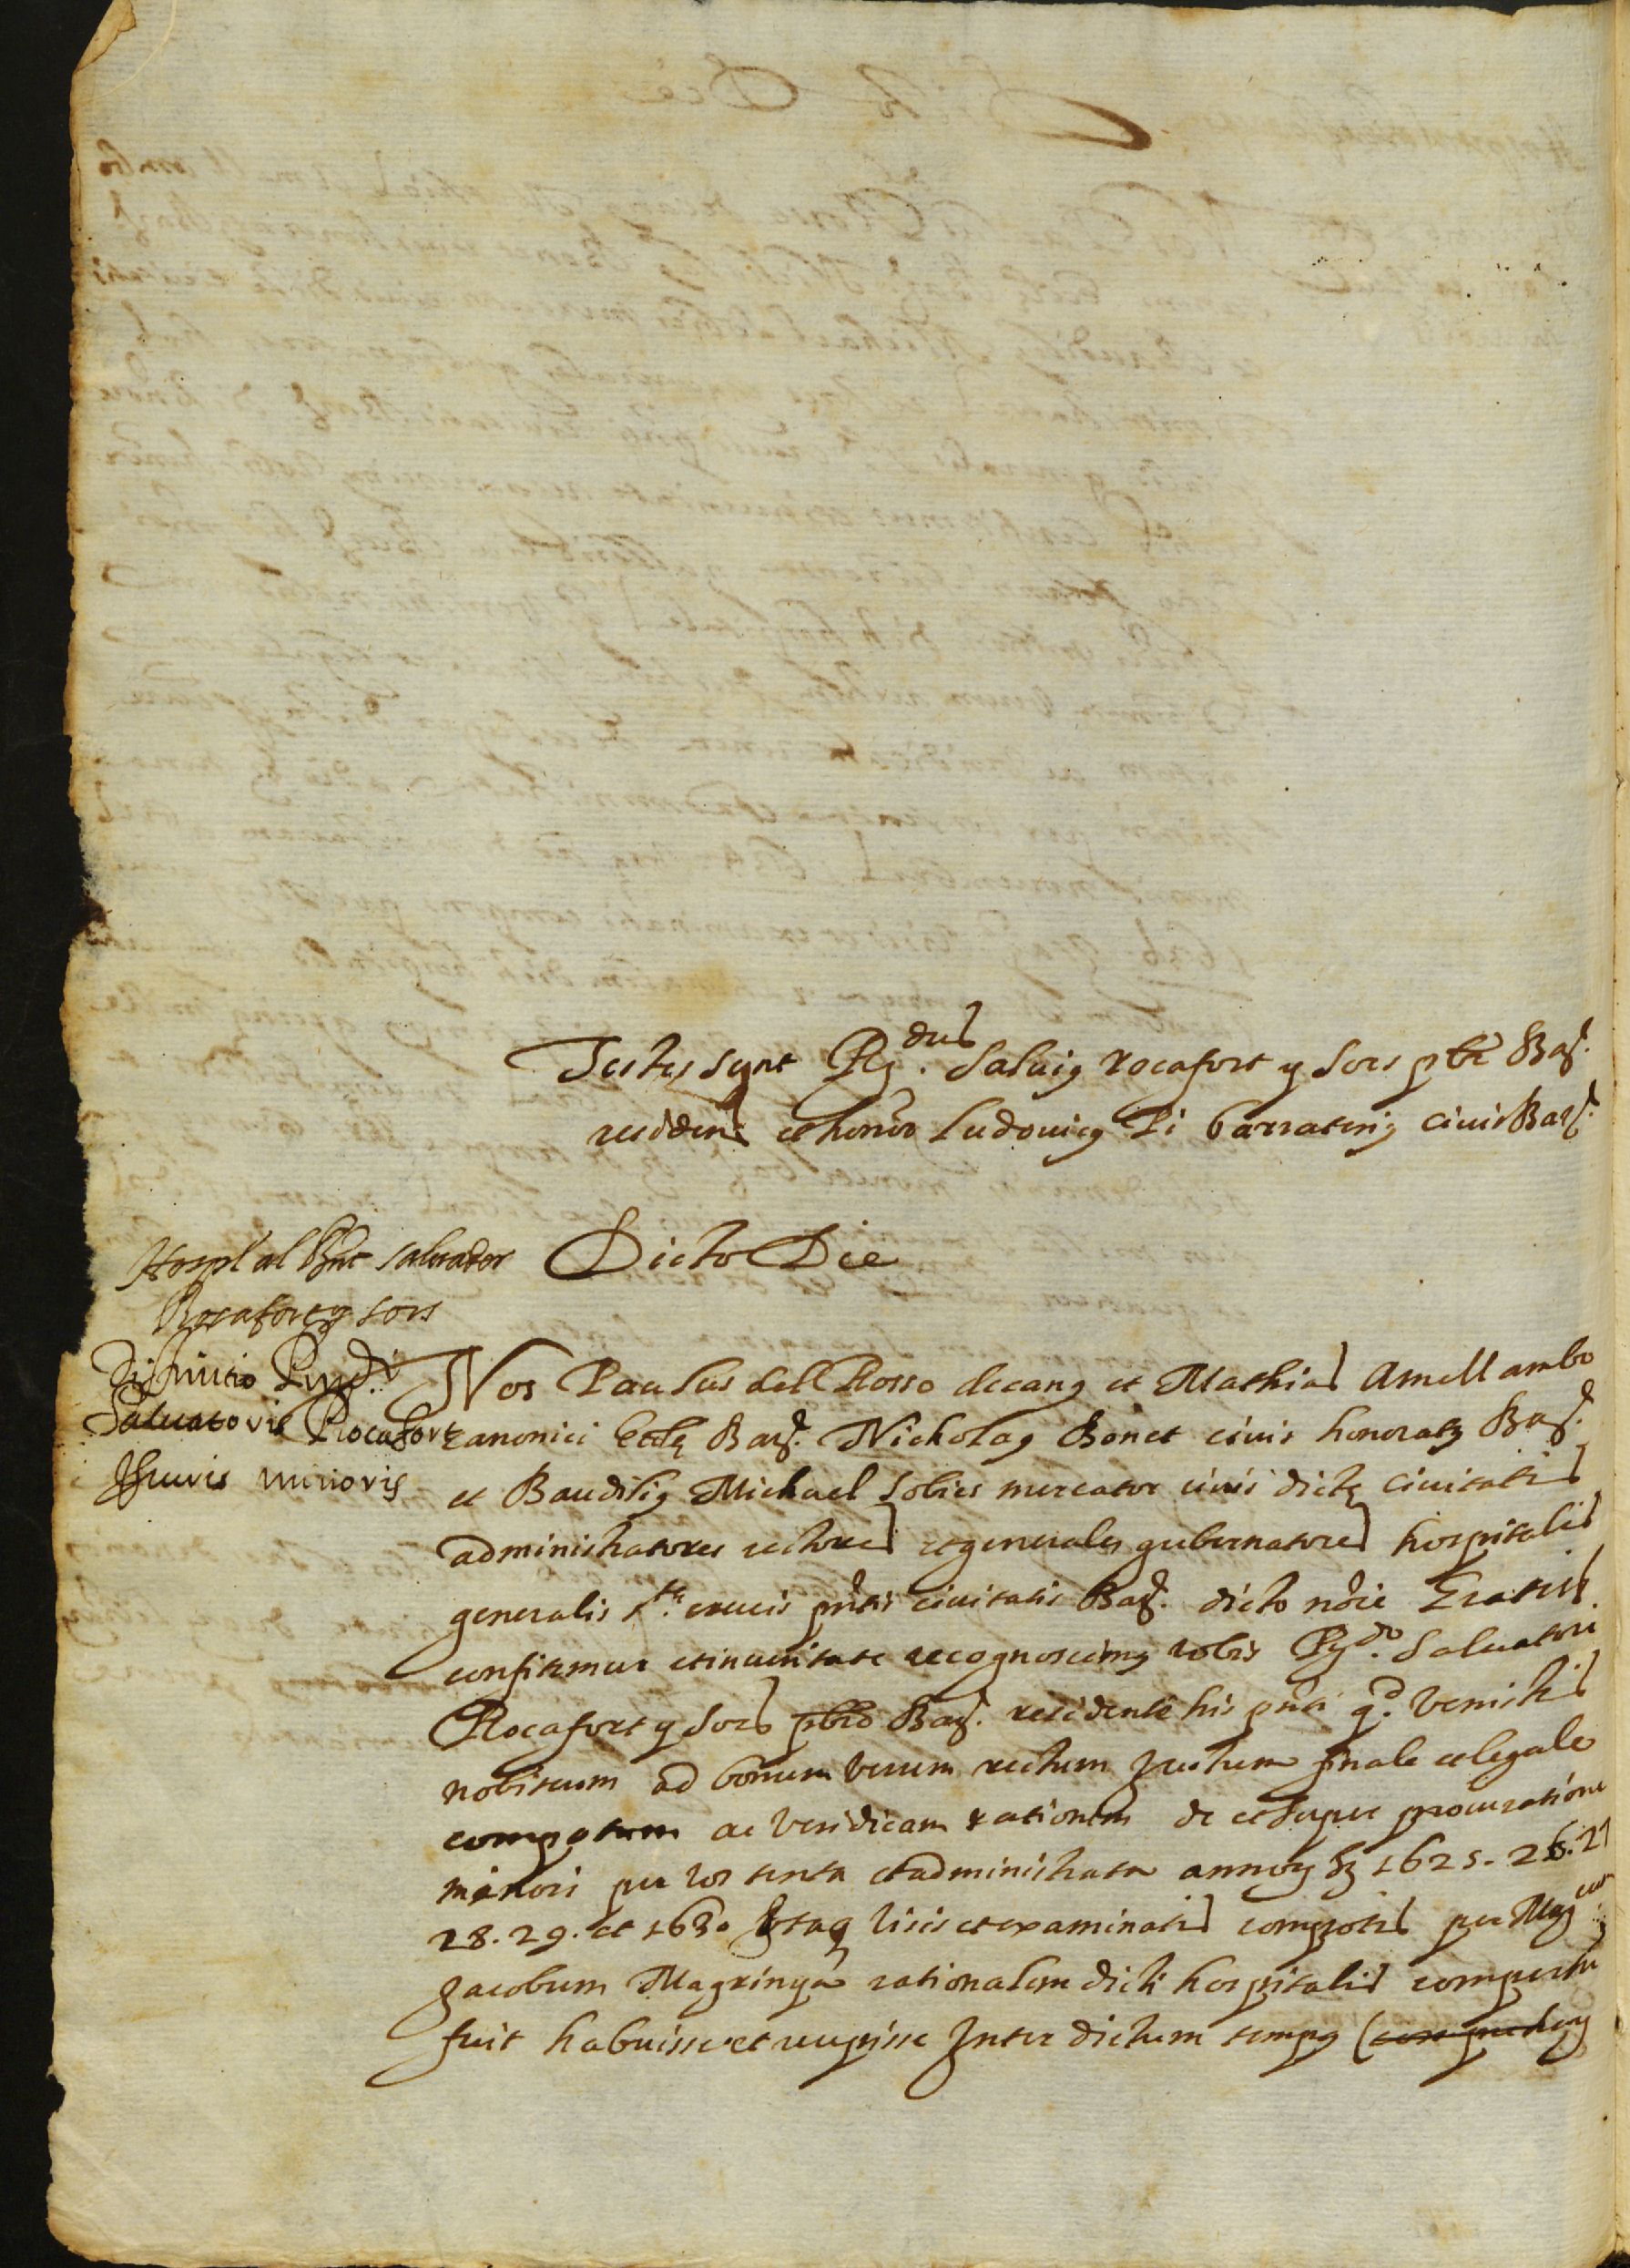 Testes sunt Rdus. Saluius rocafort y sors pbr Barȝ.
residens et honor Ludouicus Pi barraterius ciuis Barȝ.
Dicto Die
Hospl al Rnt saluador
Rocafort y sors
Difinitio Rndi
Saluatoris Rocafort
Jhuris minoris
Nos Paulus dell Rosso decanus et Mathias Amell ambo
canonici Eccle Barȝ. Nicholaus Bonet ciuis honoratus Barȝ.
et Baudilius Michael Solies mercator ciuis dicte ciuitatis
administratores rectores et generales gubernatores hospitalis
generalis ste. crucis pntis ciuitatis Barȝ. dicto noie Gratis
confitemur et in ueritate recognoscimus vobis Rdo. Saluatori
Rocafort y Sors pbro Barȝ. residente his pnti qd. venistis
nobiscum ad bonum verum rectum Justum finale et legale
compotum ac veridicam rationem de et super procuratione
minori per vos tenta et administrata annis 1625. 26. 27
28. 29. et 1630 Etaq visis et examinatis compotis per Magcum
Jacobum Magrinya rationalem dicti hospitalis compertu
fuit habuisse et recepisse Inter dictum tempus